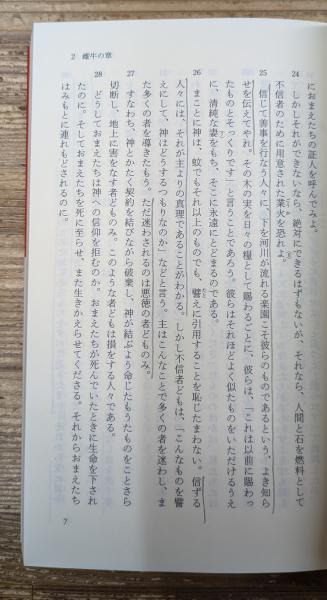 2 雌牛の章
におまえたちの証人を呼んでみよ。
24 しかしそれができないなら、絶対にできるはずもないが、それなら、人間と石を燃料として
不信者のために用意された業火を恐れよ。
25 信じて善事を行なう人々に、下を河川が流れる楽園こそ彼らのものであるという、よき知ら
せを伝えてやれ。その木の実を日々の糧として賜わるごとに、彼らは、「これは以前に賜わっ
たものとそっくりです」と言うことであろう。彼らはそれほどよく似たものをいただけるうえ
に、清純な妻をもち、そこに永遠にとどまるのである。
26 まことに神は、蚊でもそれ以上のものでも、譬えに引用することを恥じたまわない。信ずる
人々には、それが主よりの真理であることがわかる。しかし不信者どもは、「こんなものを譬
えにして、神はどうするつもりなのか」などと言う。主はこんなことで多くの者を迷わし、ま
た多くの者を導きたもう。ただ迷わされるのは悪徳の者どものみ。
27 すなわち、神とかたく契約を結びながら破棄し、神が結ぶよう命じたもうたものをことさら
切断し、地上に害をなす者どものみ。このような者どもは損をする人々である。
28 どうしておまえたちは神への信仰を拒むのか。おまえたちが死んでいたときに生命を下され
たのに。そしておまえたちを死に至らせ、また生きかえらせてくださる。それからおまえたち
はみもとに連れもどされるのに。
7